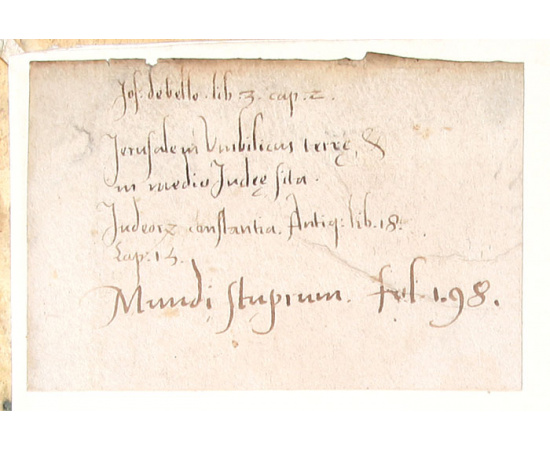 Jos: de bello. lib. 3. cap. 2.
Jerusalem Vmbilicus terrę, &
in medio Judęę sita.
Judeorꝫ constantia. Antiq: lib. 18.
Cap. 15.
Mundj stuprum. fol. 1.98.